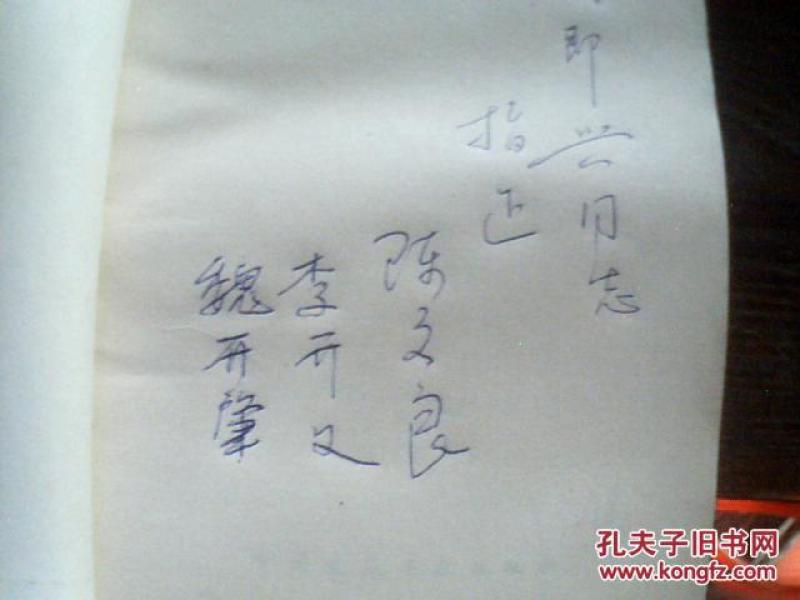 即兴同志
指正
陈文良
李开文
魏开肇
孔夫子旧书网
www.kongfz.com